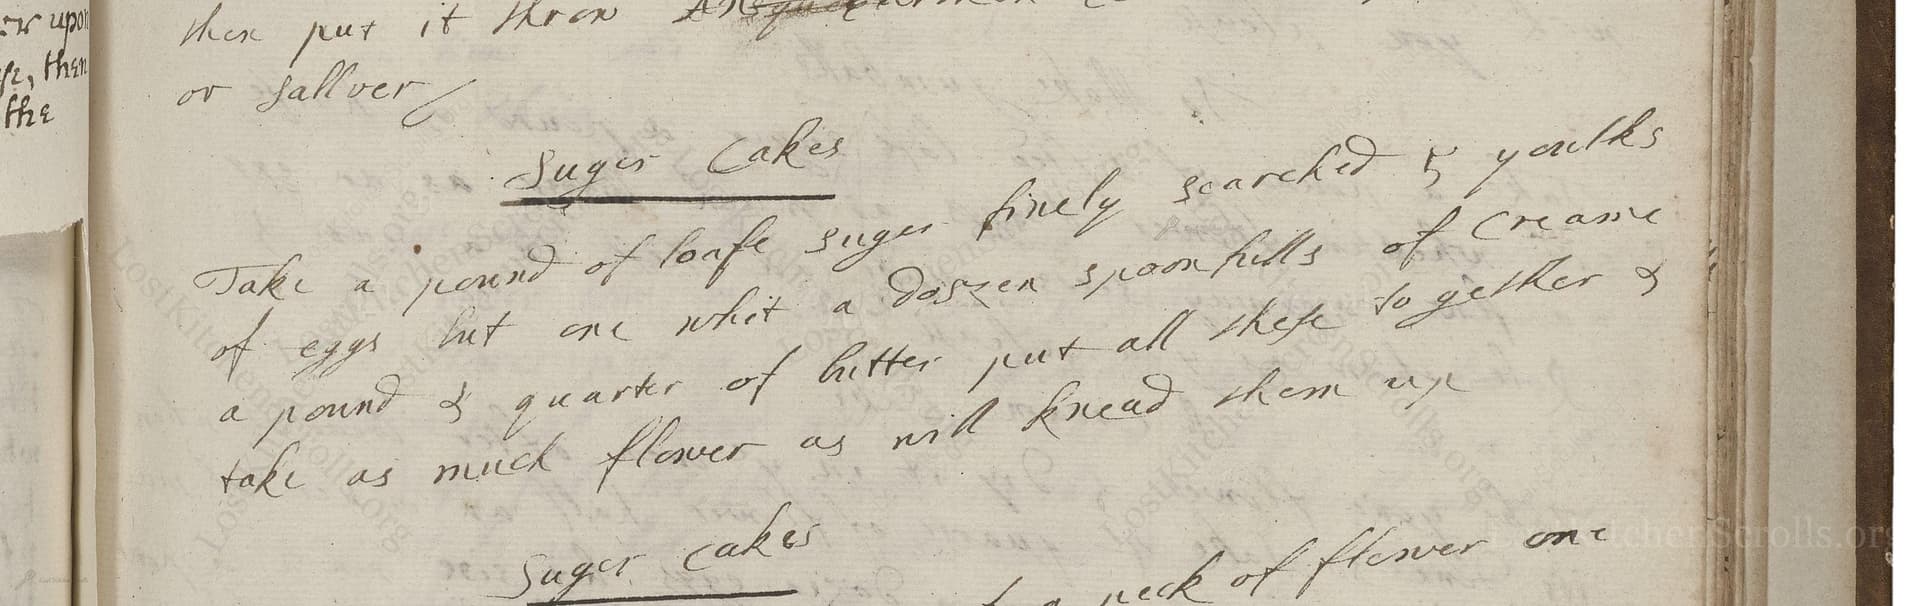 er upon
then
the
then put it throw
or sallver
Suger Cakes
Take a pound of loafe suger finely searched 5 youlks
of eggs but one whit a doszen spoonfulls of Creame
a pound & quarter of butter put all these together &
take as much flower as will knead them up
Suger Cakes
peck of flower one
LostKitchenScrolls.org